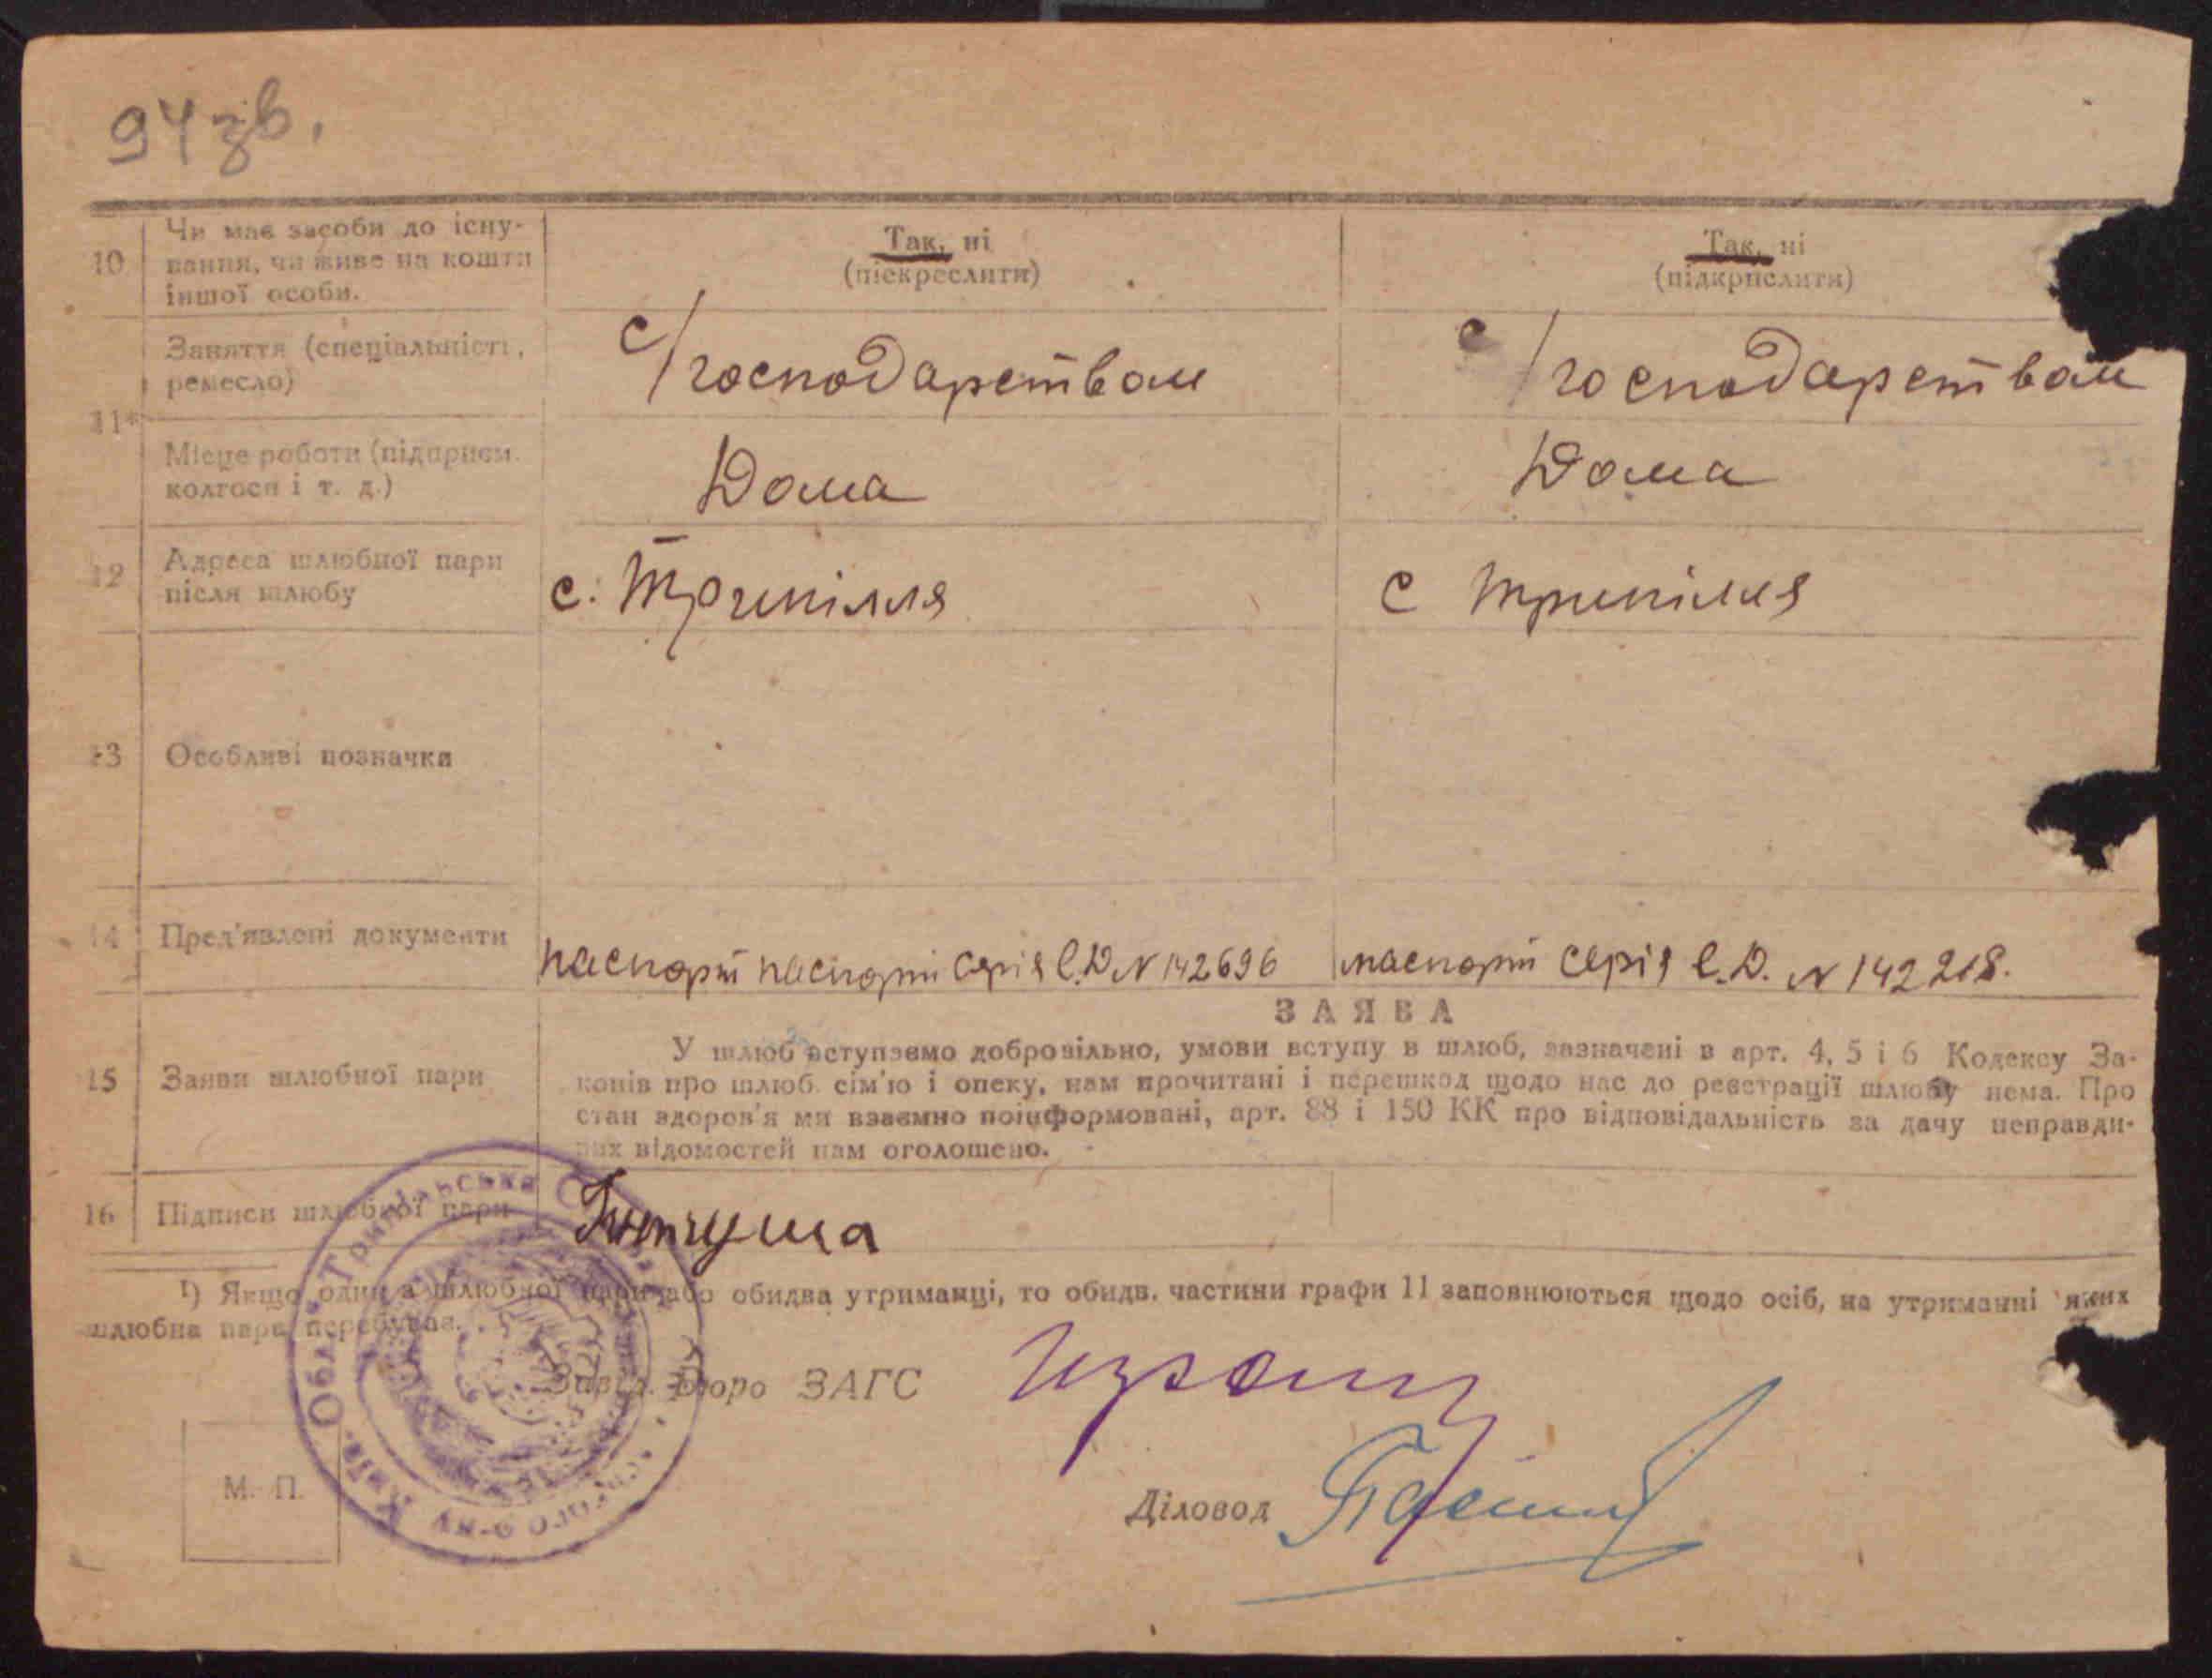 94 зв.
10 Чи має засоби до існу-
вання, чи живе на кошти
іншої особи.
Так, ні
(піекреслити)
Так, ні
(підкрислити)
11*
Заняття (спеціальність,
ремесло)
с/господарством
с/господарством
Місце роботи (підприєм.
колгосп і т. д.)
Дома
Дома
12 Адреса шлюбної пари
після шлюбу
с. Трипілля
с Трипілля
13 Особливі позначки
14 Пред'явлені документи
паспорт паспорт серія Є.Д. N 142696
паспорт серія Є.Д. N 142218.
15 Заяви шлюбної пари
ЗАЯВА
У шлюб вступаємо добровільно, умови вступу в шлюб, зазначені в арт. 4, 5 і 6 Кодексу За-
конів про шлюб. сім'ю і опеку, нам прочитані і перешкод щодо нас до реєстрації шлюбу нема. Про
стан здоров'я ми взаємно поінформовані, арт. 88 і 150 КК про відповідальність за дачу неправди-
вих відомостей нам оголошено.
16 Підписи шлюбної пари
1) Якщо один з шлюбної пари або обидва утриманці, то обидв. частини графи 11 заповнюються щодо осіб, на утриманні яких
шлюбна пара перебуває.
Завід. Бюро ЗАГС
М. П.
Діловод
Київ. Обл. Трипільська